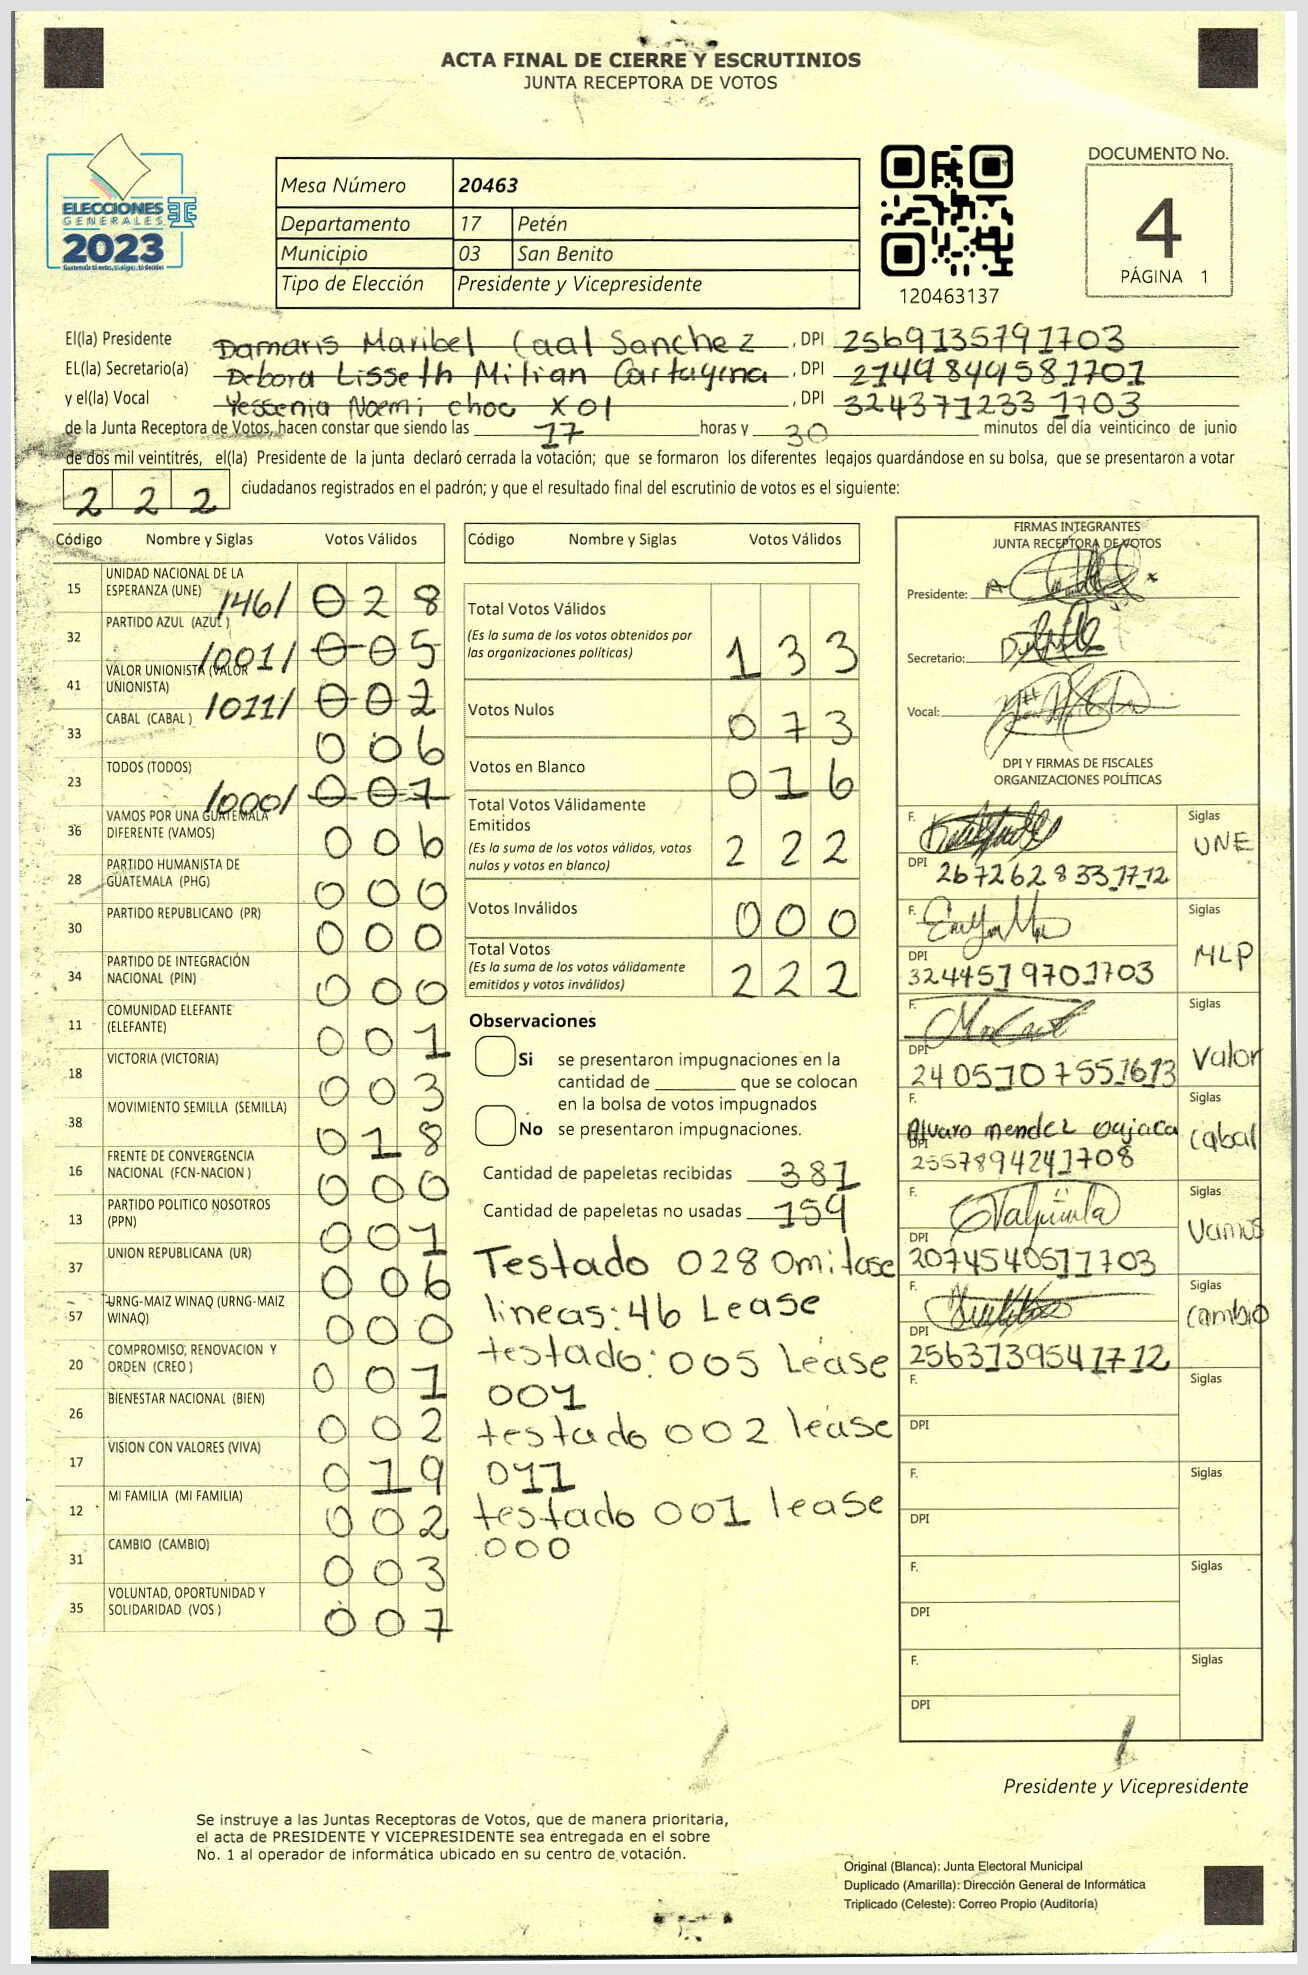 ACTA FINAL DE CIERRE Y ESCRUTINIOS
JUNTA RECEPTORA DE VOTOS
ELECCIONES
GENERALES
2023
Mesa Número 20463
Departamento 17 Petén
Municipio 03 San Benito
Tipo de Elección Presidente y Vicepresidente
120463137
DOCUMENTO No.
4
PÁGINA 1
El(la) Presidente Damaris Maribel Caal Sanchez , DPI 2569135791703
EL(la) Secretario(a) Debora Lisseth Milian Cartagena , DPI 2149849581701
y el(la) Vocal Yessenia Noemi choc Xol , DPI 3243712331703
de la Junta Receptora de Votos, hacen constar que siendo las 17 horas y 30 minutos del día veinticinco de junio
de dos mil veintitrés, el(la) Presidente de la junta declaró cerrada la votación; que se formaron los diferentes legajos quardándose en su bolsa, que se presentaron a votar
2 2 2 ciudadanos registrados en el padrón; y que el resultado final del escrutinio de votos es el siguiente:
Código Nombre y Siglas Votos Válidos
15 UNIDAD NACIONAL DE LA ESPERANZA (UNE) /46/ 0 2 8
32 PARTIDO AZUL (AZUL) /001/ 0 0 5
41 VALOR UNIONISTA (VALOR UNIONISTA) /011/ 0 0 2
33 CABAL (CABAL) 0 0 6
23 TODOS (TODOS) /000/ 0 0 1
36 VAMOS POR UNA GUATEMALA DIFERENTE (VAMOS) 0 0 6
28 PARTIDO HUMANISTA DE GUATEMALA (PHG) 0 0 0
30 PARTIDO REPUBLICANO (PR) 0 0 0
34 PARTIDO DE INTEGRACIÓN NACIONAL (PIN) 0 0 0
11 COMUNIDAD ELEFANTE (ELEFANTE) 0 0 1
18 VICTORIA (VICTORIA) 0 0 3
38 MOVIMIENTO SEMILLA (SEMILLA) 0 1 8
16 FRENTE DE CONVERGENCIA NACIONAL (FCN-NACION) 0 0 0
13 PARTIDO POLITICO NOSOTROS (PPN) 0 0 1
37 UNION REPUBLICANA (UR) 0 0 6
57 URNG-MAIZ WINAQ (URNG-MAIZ WINAQ) 0 0 0
20 COMPROMISO, RENOVACION Y ORDEN (CREO) 0 0 1
26 BIENESTAR NACIONAL (BIEN) 0 0 2
17 VISION CON VALORES (VIVA) 0 1 9
12 MI FAMILIA (MI FAMILIA) 0 0 2
31 CAMBIO (CAMBIO) 0 0 3
35 VOLUNTAD, OPORTUNIDAD Y SOLIDARIDAD (VOS) 0 0 7
Código Nombre y Siglas Votos Válidos
Total Votos Válidos 1 3 3
(Es la suma de los votos obtenidos por
las organizaciones políticas)
Votos Nulos 0 7 3
Votos en Blanco 0 1 6
Total Votos Válidamente
Emitidos 2 2 2
(Es la suma de los votos válidos, votos
nulos y votos en blanco)
Votos Inválidos 0 0 0
Total Votos 2 2 2
(Es la suma de los votos válidamente
emitidos y votos inválidos)
Observaciones
Si se presentaron impugnaciones en la
cantidad de ________ que se colocan
en la bolsa de votos impugnados
No se presentaron impugnaciones.
Cantidad de papeletas recibidas 381
Cantidad de papeletas no usadas 159
Testado 028 Omitase
lineas: 46 Lease
testado: 005 Lease
001
testado 002 lease
011
testado 001 lease
000
FIRMAS INTEGRANTES
JUNTA RECEPTORA DE VOTOS
Presidente:
Secretario:
Vocal:
DPI Y FIRMAS DE FISCALES
ORGANIZACIONES POLÍTICAS
F. Siglas UNE
DPI 2672628331712
F. Siglas MLP
DPI 3244519701703
F. Siglas Valor
DPI 2405107551613
F. Alvaro mendez Siglas Cabal
DPI 2557894241708
F. Siglas Vamos
DPI 2074540511703
F. Siglas Cambio
DPI 2563739541712
F. Siglas
DPI
F. Siglas
DPI
F. Siglas
DPI
F. Siglas
DPI
Presidente y Vicepresidente
Se instruye a las Juntas Receptoras de Votos, que de manera prioritaria,
el acta de PRESIDENTE Y VICEPRESIDENTE sea entregada en el sobre
No. 1 al operador de informática ubicado en su centro de votación.
Original (Blanca): Junta Electoral Municipal
Duplicado (Amarilla): Dirección General de Informática
Triplicado (Celeste): Correo Propio (Auditoría)